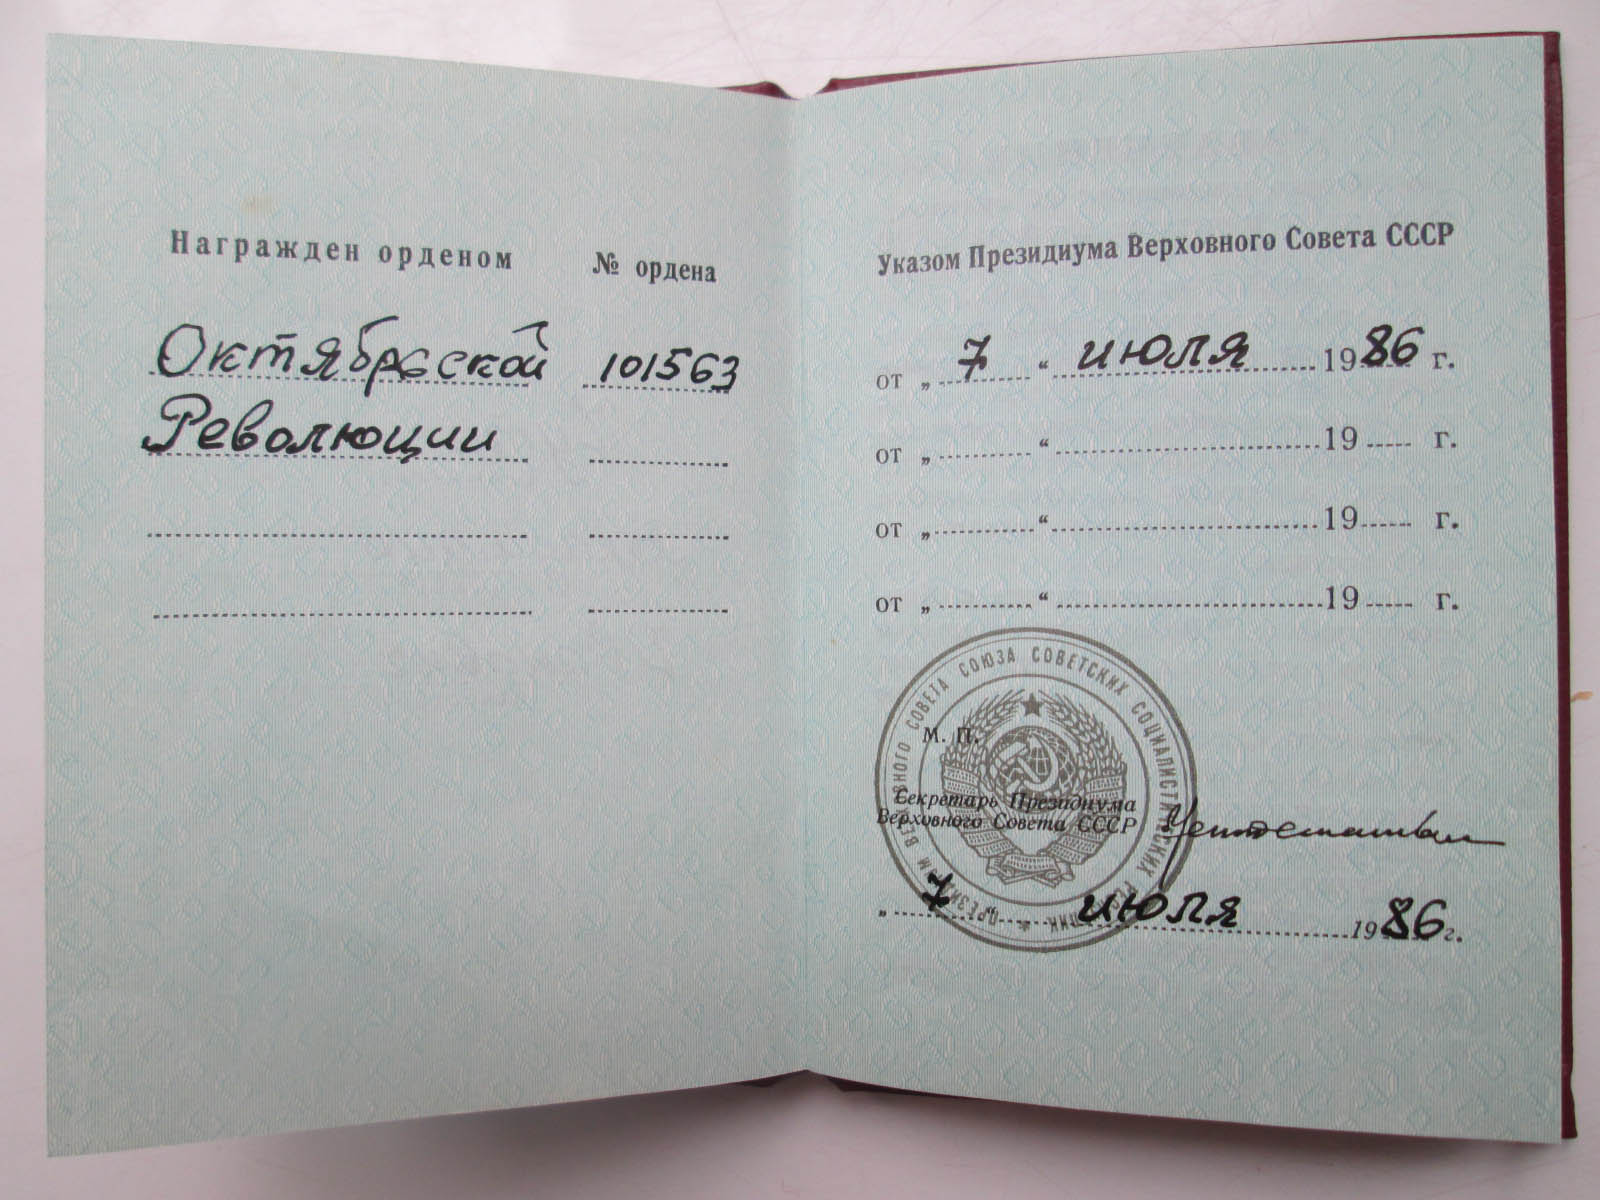 Награжден орденом № ордена
Октябрьской 101563
Революции
Указом Президиума Верховного Совета СССР
от „ 7 “ июля 1986 г.
от „ “ 19 г.
от „ “ 19 г.
от „ “ 19 г.
ПРЕЗИДИУМ ВЕРХОВНОГО СОВЕТА СОЮЗА СОВЕТСКИХ СОЦИАЛИСТИЧЕСКИХ РЕСПУБЛИК
М. П.
Секретарь Президиума
Верховного Совета СССР
„ 7 “ июля 1986 г.